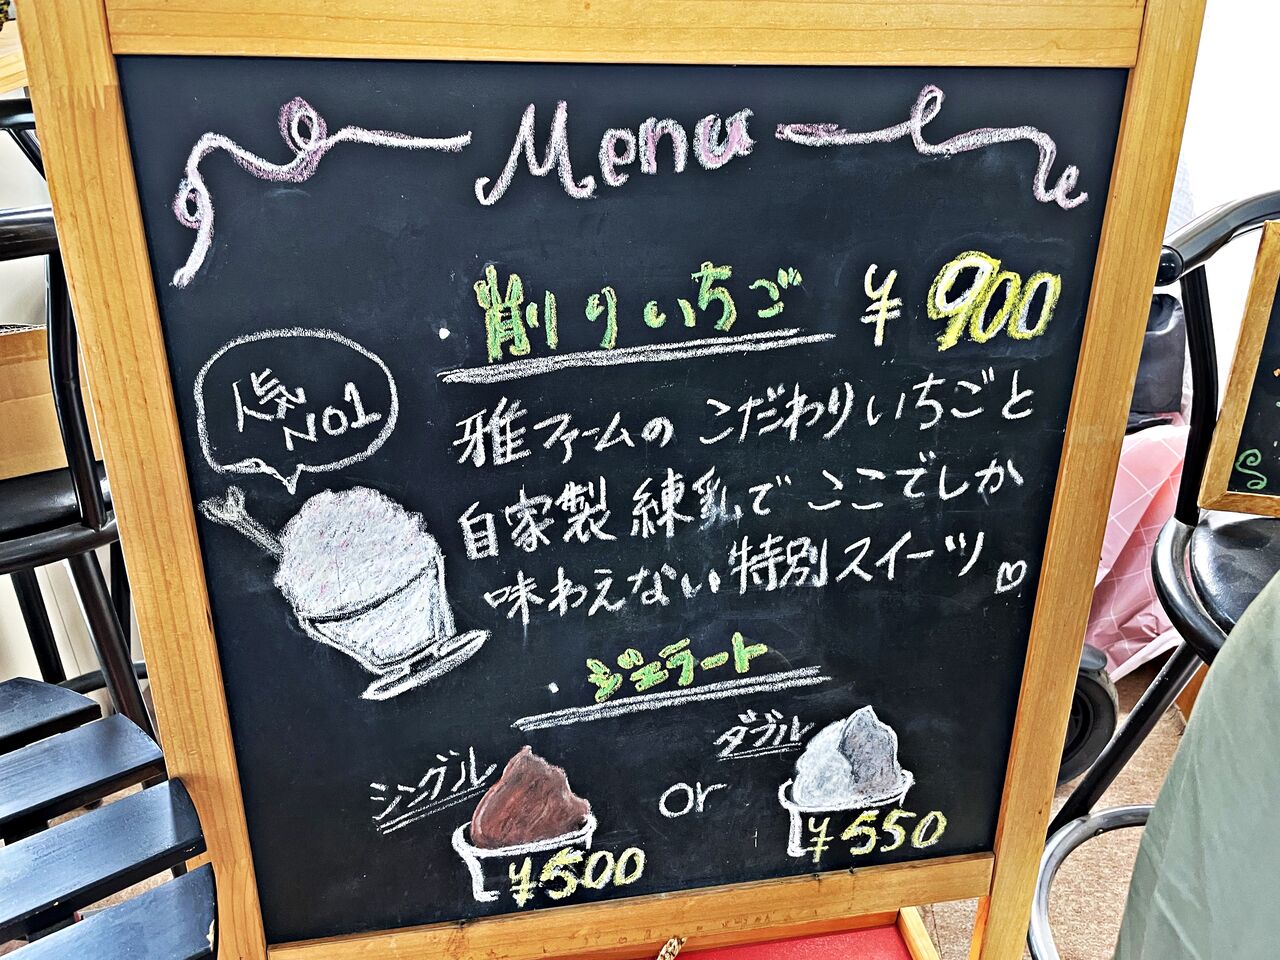 Menu
・削りいちご ¥900
人気
NO1
雅ファームの こだわりいちごと
自家製 練乳で ここでしか
味わえない 特別スイーツ♡
・ジェラート
シングル or ダブル
¥500 ¥550
S